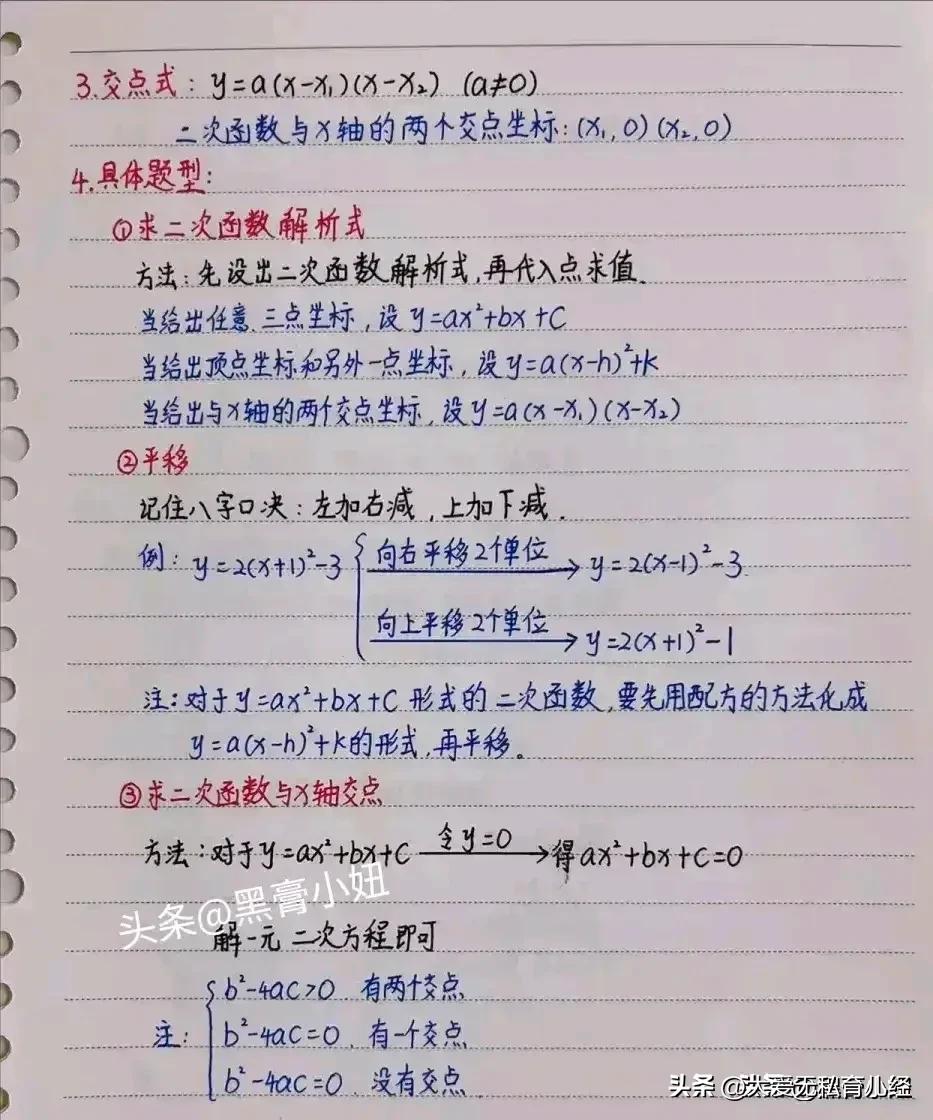 3.交点式：y=a(x-x₁)(x-x₂) (a≠0)
二次函数与x轴的两个交点坐标：(x₁,0)(x₂,0)
4.具体题型：
①求二次函数解析式
方法：先设出二次函数解析式,再代入点求值.
当给出任意三点坐标，设y=ax²+bx+c
当给出顶点坐标和另外一点坐标，设y=a(x-h)²+k
当给出与x轴的两个交点坐标，设y=a(x-x₁)(x-x₂)
②平移
记住八字口决：左加右减，上加下减.
例：y=2(x+1)²-3 { 向右平移2个单位 → y=2(x-1)²-3
向上平移2个单位 → y=2(x+1)²-1
注：对于y=ax²+bx+c形式的二次函数,要先用配方的方法化成
y=a(x-h)²+k的形式,再平移。
③求二次函数与x轴交点
方法：对于y=ax²+bx+c 令y=0 → 得ax²+bx+c=0
头条@黑膏小妞
解一元二次方程即可
注： { b²-4ac>0 有两个交点
b²-4ac=0 有一个交点
b²-4ac=0 没有交点
头条